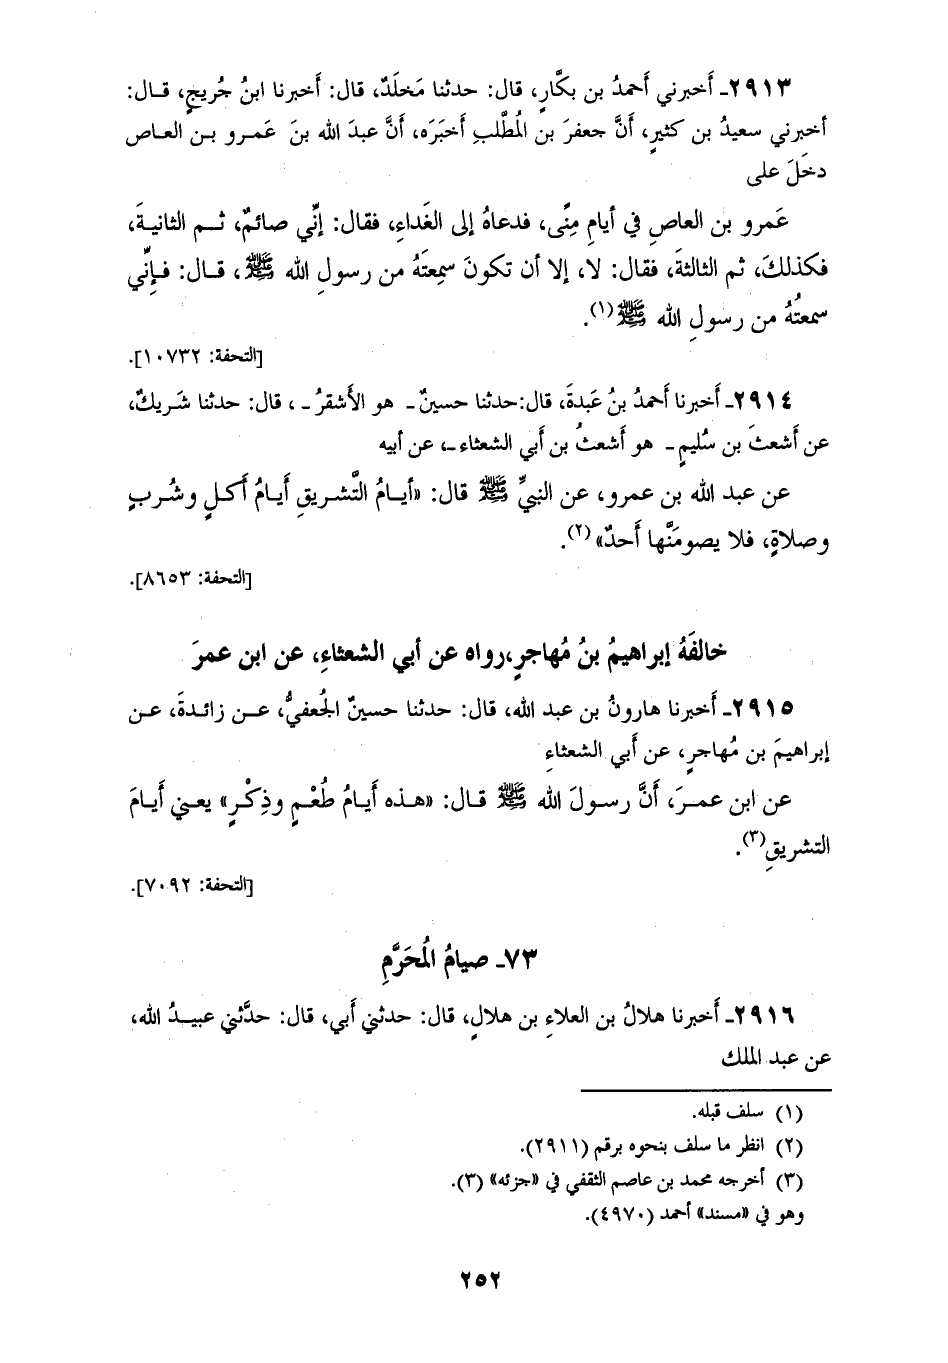 ٢٩١٣ـ أَخبرني أَحمدُ بن بكَّارٍ، قال: حدثنا مَخلَدٌ، قال: أَخبرنا ابنُ جُريجٍ، قـال:
أخبرني سعيدُ بن كثيرٍ، أَنَّ جعفرَ بن المُطَّلبِ أَخبَرَه، أَنَّ عبدَ الله بنَ عَمـرو بـن العـاص
دخَلَ على
عَمرو بن العاصِ في أيامِ مِنًى، فدعاهُ إلى الغَداءِ، فقال: إنِّي صائمٌ، ثـم الثانيـةَ،
فكذلكَ، ثم الثالثةَ، فقال: لا، إلا أن تكونَ سمِعتَهُ من رسولِ الله ﷺ، قـال: فـإنِّي
سمعتُهُ من رسولِ الله ﷺ(١).
[التحفة: ١٠٧٣٢].
٢٩١٤ـ أَخبرنا أَحمدُ بنُ عَبدةَ، قال:حدثنا حسينٌ ـ هو الأشقرُ ـ، قال: حدثنا شَريكٌ،
عن أَشعثَ بن سُليمٍ ـ هو أَشعثُ بن أبي الشعثاء ـ، عن أبيه
عن عبد الله بن عمرو، عن النبيِّ ﷺ قال: «أيـامُ التَّشـريقِ أَيـامُ أكـلٍ وشُـربٍ
وصلاةٍ، فلا يصومَنَّها أَحدٌ»(٢).
[التحفة: ٨٦٥٣].
خالفَهُ إبراهيمُ بنُ مُهاجرٍ،رواه عن أبي الشعثاءِ، عن ابن عمرَ
٢٩١٥ـ أَخبرنا هارونُ بن عبد الله، قال: حدثنا حسينٌ الجُعفيُّ، عـن زائـدةَ، عـن
إبراهيمَ بن مُهاجرٍ، عن أَبي الشعثاءِ
عن ابن عمـرَ، أَنَّ رسـولَ الله ﷺ قـال: «هـذه أَيـامُ طُعْـمٍ وذِكْـرٍ» يعـني أَيـامَ
التشريقِ(٣).
[التحفة: ٧٠٩٢].
٧٣ـ صيامُ المُحَرَّمِ
٢٩١٦ـ أَخبرنا هلالُ بن العلاءِ بن هلالٍ، قال: حدثني أَبي، قال: حدَّثني عبيـدُ الله،
عن عبد الملك
(١) سلف قبله.
(٢) انظر ما سلف بنحوه برقم (٢٩١١).
(٣) أخرجه محمد بن عاصم الثقفي في «جزئه» (٣).
وهو في «مسند» أحمد (٤٩٧٠).
٢٥٢